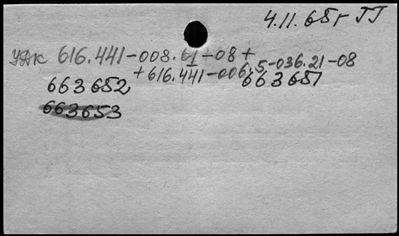 4.11.65г ТТ
УДК 616.441-008.61-08+
+616.441-006.5-036.21-08
663652 663651
663653